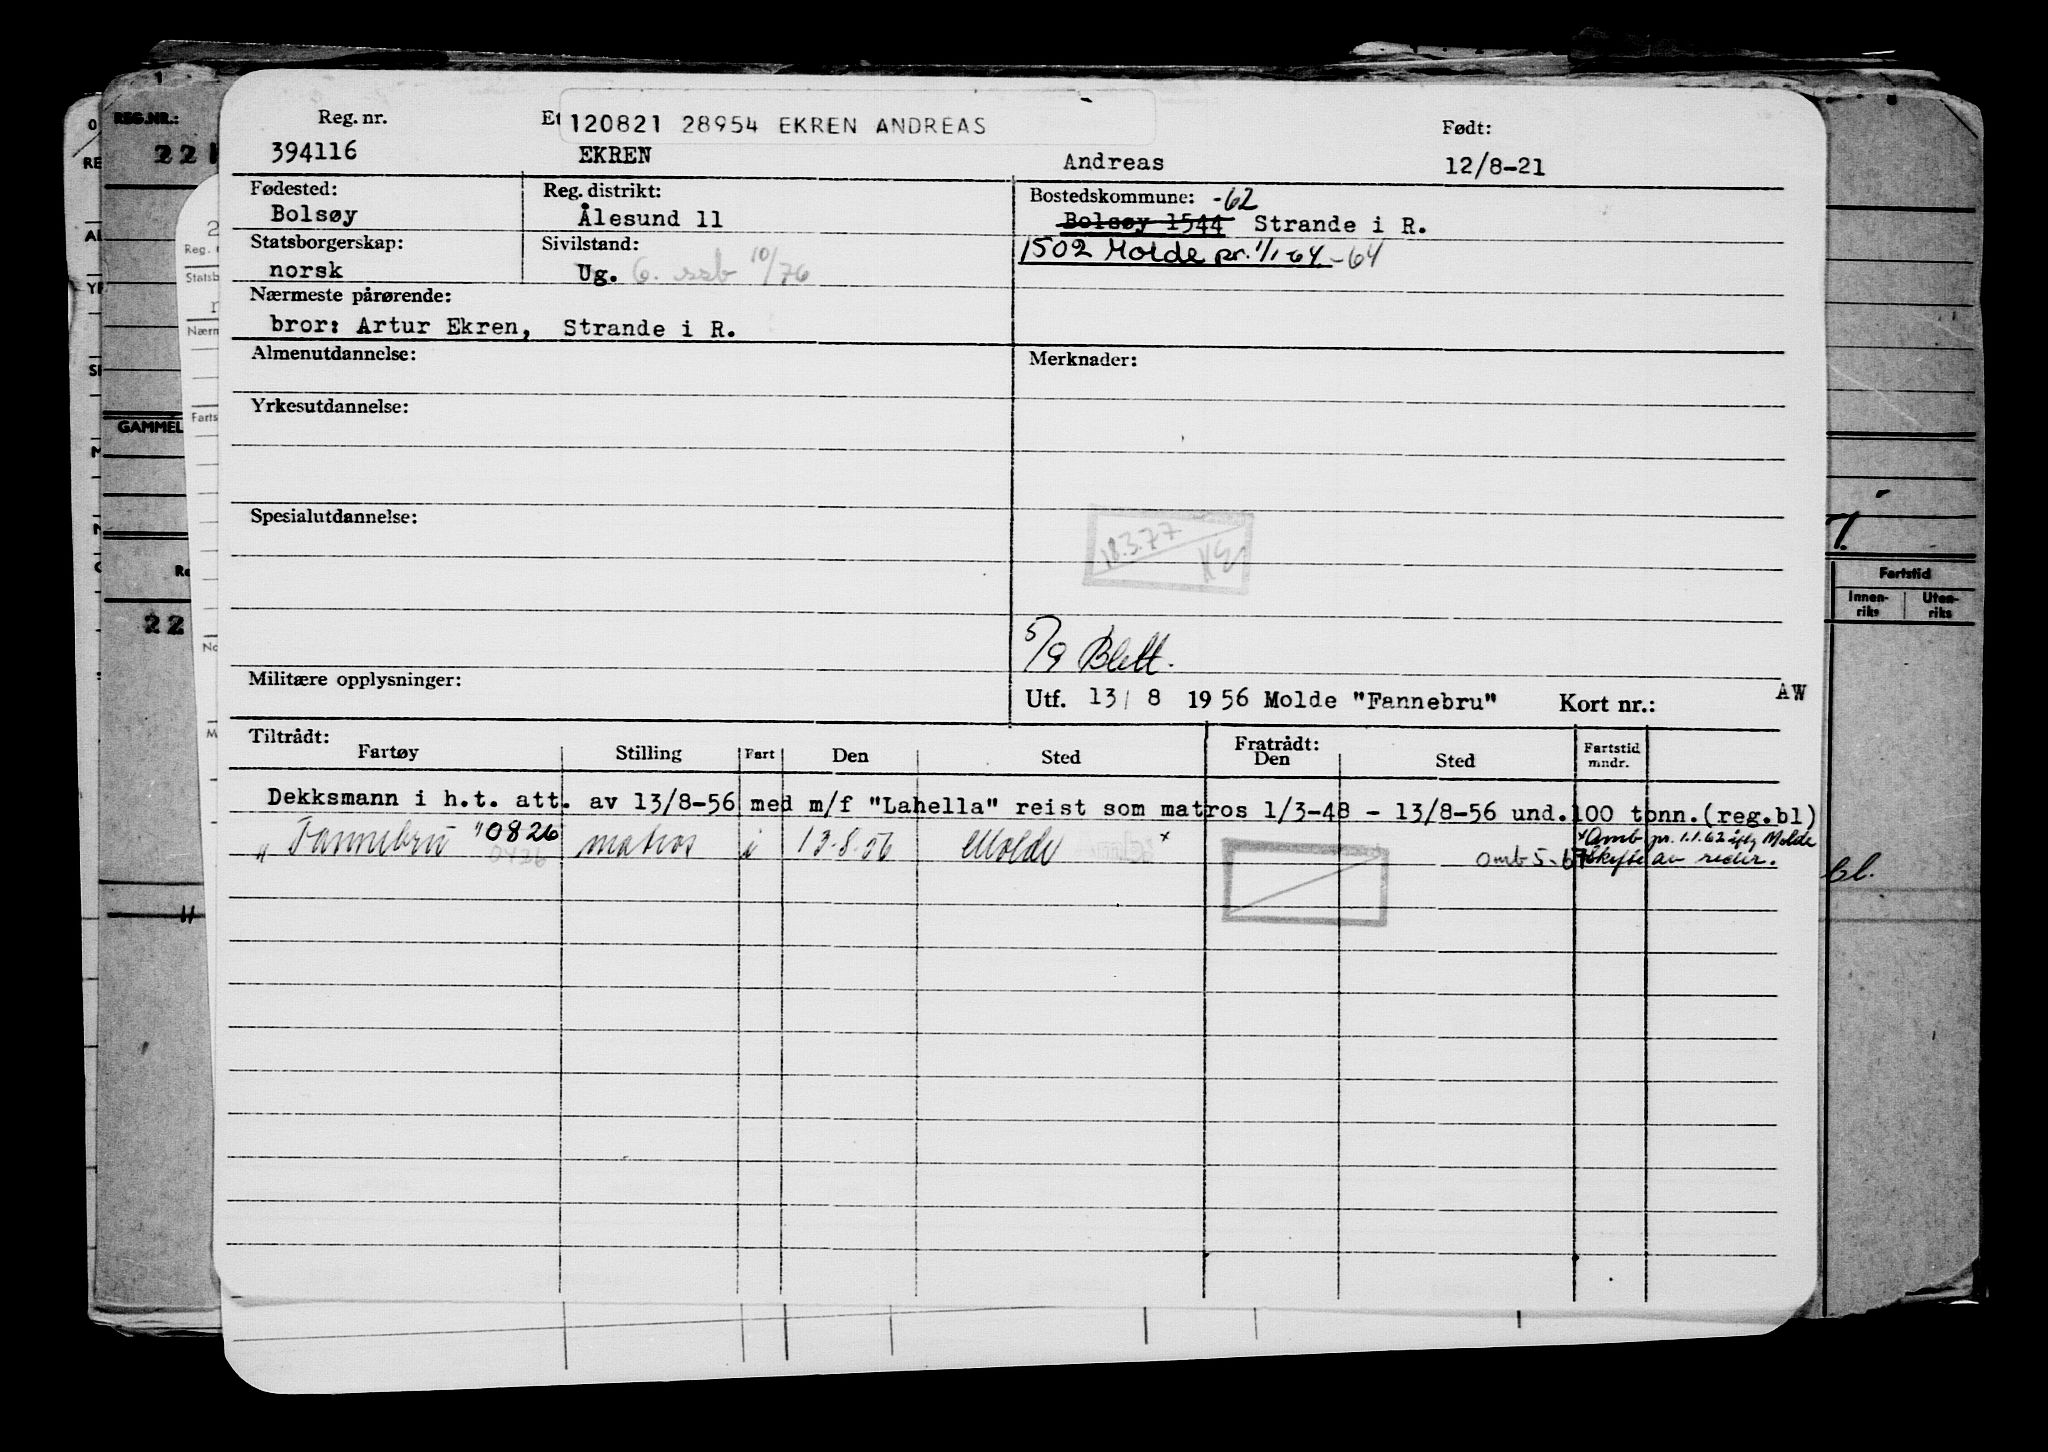 Reg. nr. Et 120821 28954 EKREN ANDREAS Født:
394116 EKREN Andreas 12/8-21
Fødested: Reg. distrikt: Bostedskommune: -62
Bolsøy Ålesund 11 Bolsøy 1544 Strande i R.
Statsborgerskap: Sivilstand: 1502 Molde pr. 1/1-64 -64
norsk Ug. 6. ssb 10/76
Nærmeste pårørende:
bror: Artur Ekren, Strande i R.
Almenutdannelse: Merknader:
Yrkesutdannelse:
Spesialutdannelse:
18.3.77
5/9 Blett.
Militære opplysninger:
Utf. 13/8 1956 Molde "Fannebru" Kort nr.: AW
Tiltrådt: Fratrådt:
Fartøy Stilling Fart Den Sted Den Sted Fartstid mndr.
Dekksmann i h.t. att. av 13/8-56 med m/f "Lahella" reist som matros 1/3-48 - 13/8-56 und.100 tonn.(reg.bl)
"Fannebru" 0826 matros i 13.8.56 Molde x x Omb pr. 1.1.62 Molde
omb 5-67 Skifte av reder.
REG.NR.:
22
GAMMEL
22
Fartstid
Innen-riks Uten-riks
bl.